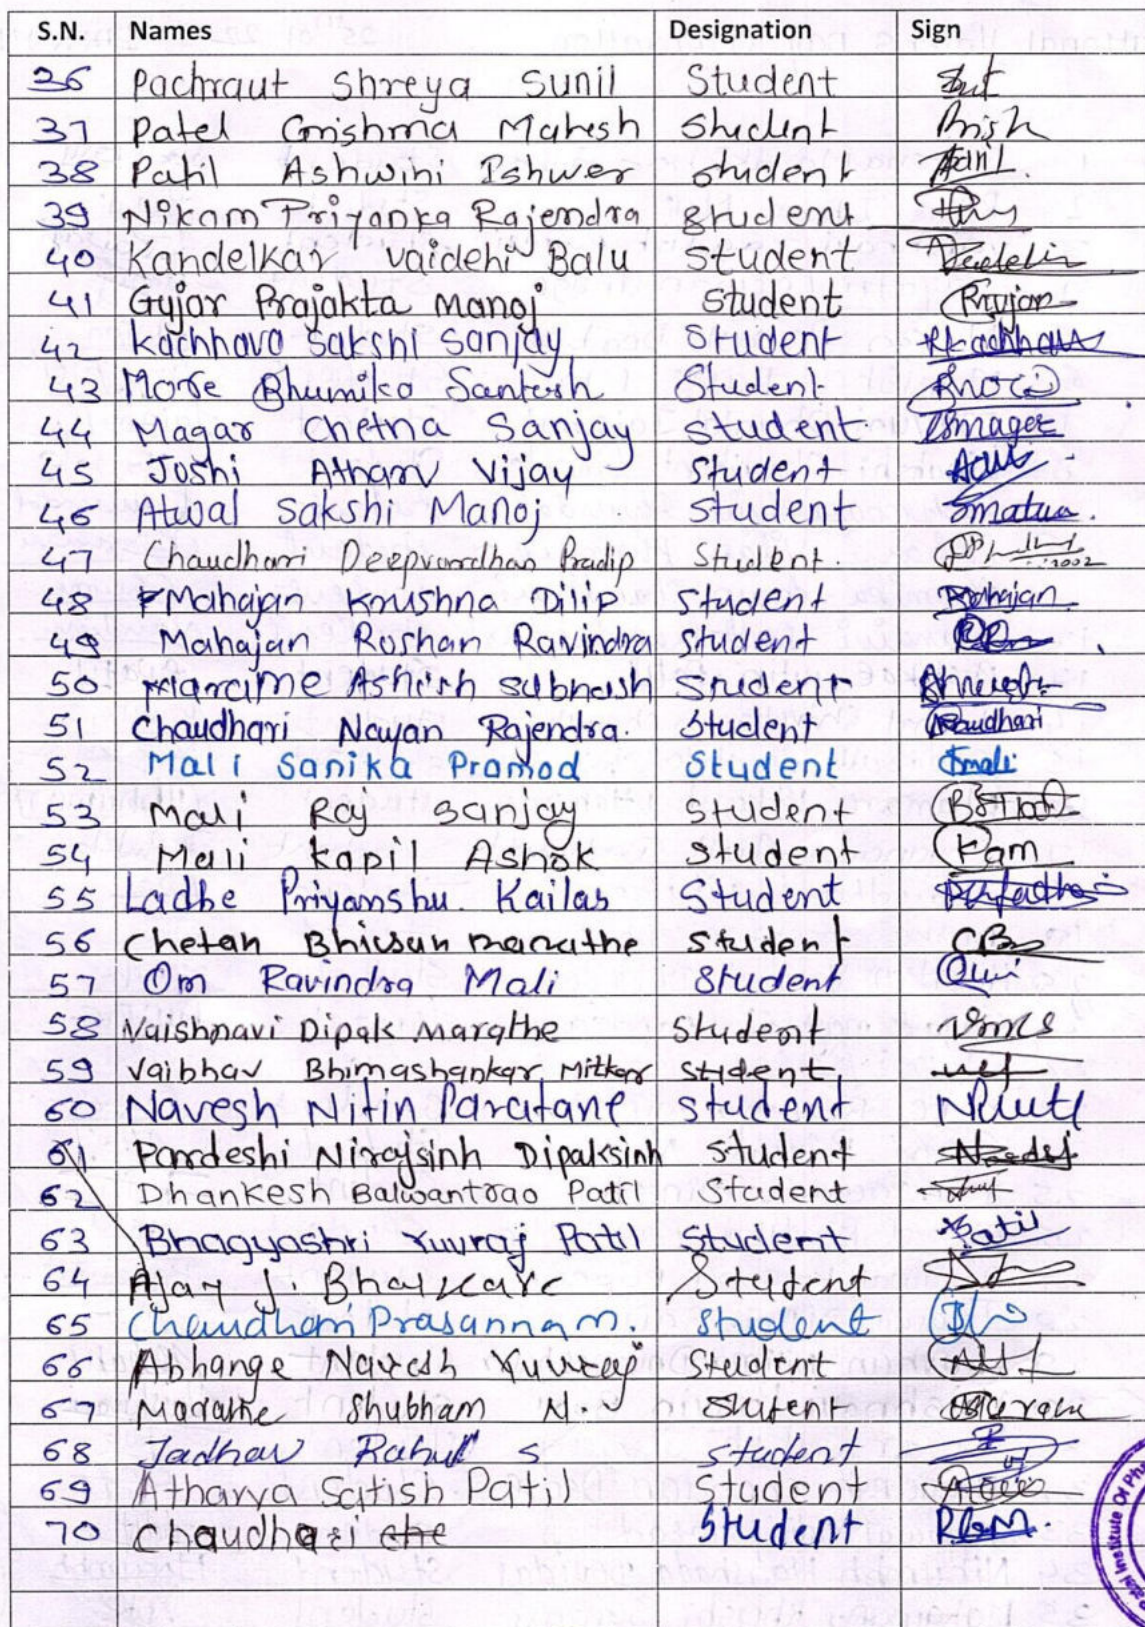 S.N. Names Designation Sign
36 Pachraut Shreya Sunil Student
37 Patel Grishma Mahesh Student
38 Patil Ashwini Ishwer student
39 Nikam Priyanka Rajendra student
40 Kandelkar Vaidehi Balu Student
41 Gujar Prajakta Manoj Student
42 Kachhava Sakshi Sanjay Student
43 More Bhumika Santosh Student
44 Magar Chetna Sanjay Student
45 Joshi Atharv Vijay Student
46 Atwal Sakshi Manoj Student
47 Chaudhari Deepvardhan Pradip Student.
48 Mahajan Krushna Dilip Student Mahajan.
49 Mahajan Roshan Ravindra Student
50 Ashish Subhash Student
51 Chaudhari Nayan Rajendra. Student Chaudhari
52 Mali Sanika Pramod Student Smali
53 Mali Raj Sanjay Student
54 Mali Kapil Ashok Student
55 Ladhe Priyanshu. Kailas Student
56 Chetan marathe Student
57 Om Ravindra Mali Student
58 Vaishnavi Dipak Marathe Student
59 Vaibhav Bhimashankar Mitkar student
60 Navesh Nitin student
61 Pardeshi Nirajsinh Dipaksinh Student
62 Dhankesh Balwantrao Patil Student
63 Bhagyashri Yuvraj Patil Student Patil
64 Ajay J Student
65 Chaudhari Prasanna m. Student
66 Abhange Navesh Yuvraj Student
67 Shubham N.
68 Jadhav Rahul S student
69 Atharva Satish Patil Student
70 Chaudhari Student
Institute Of